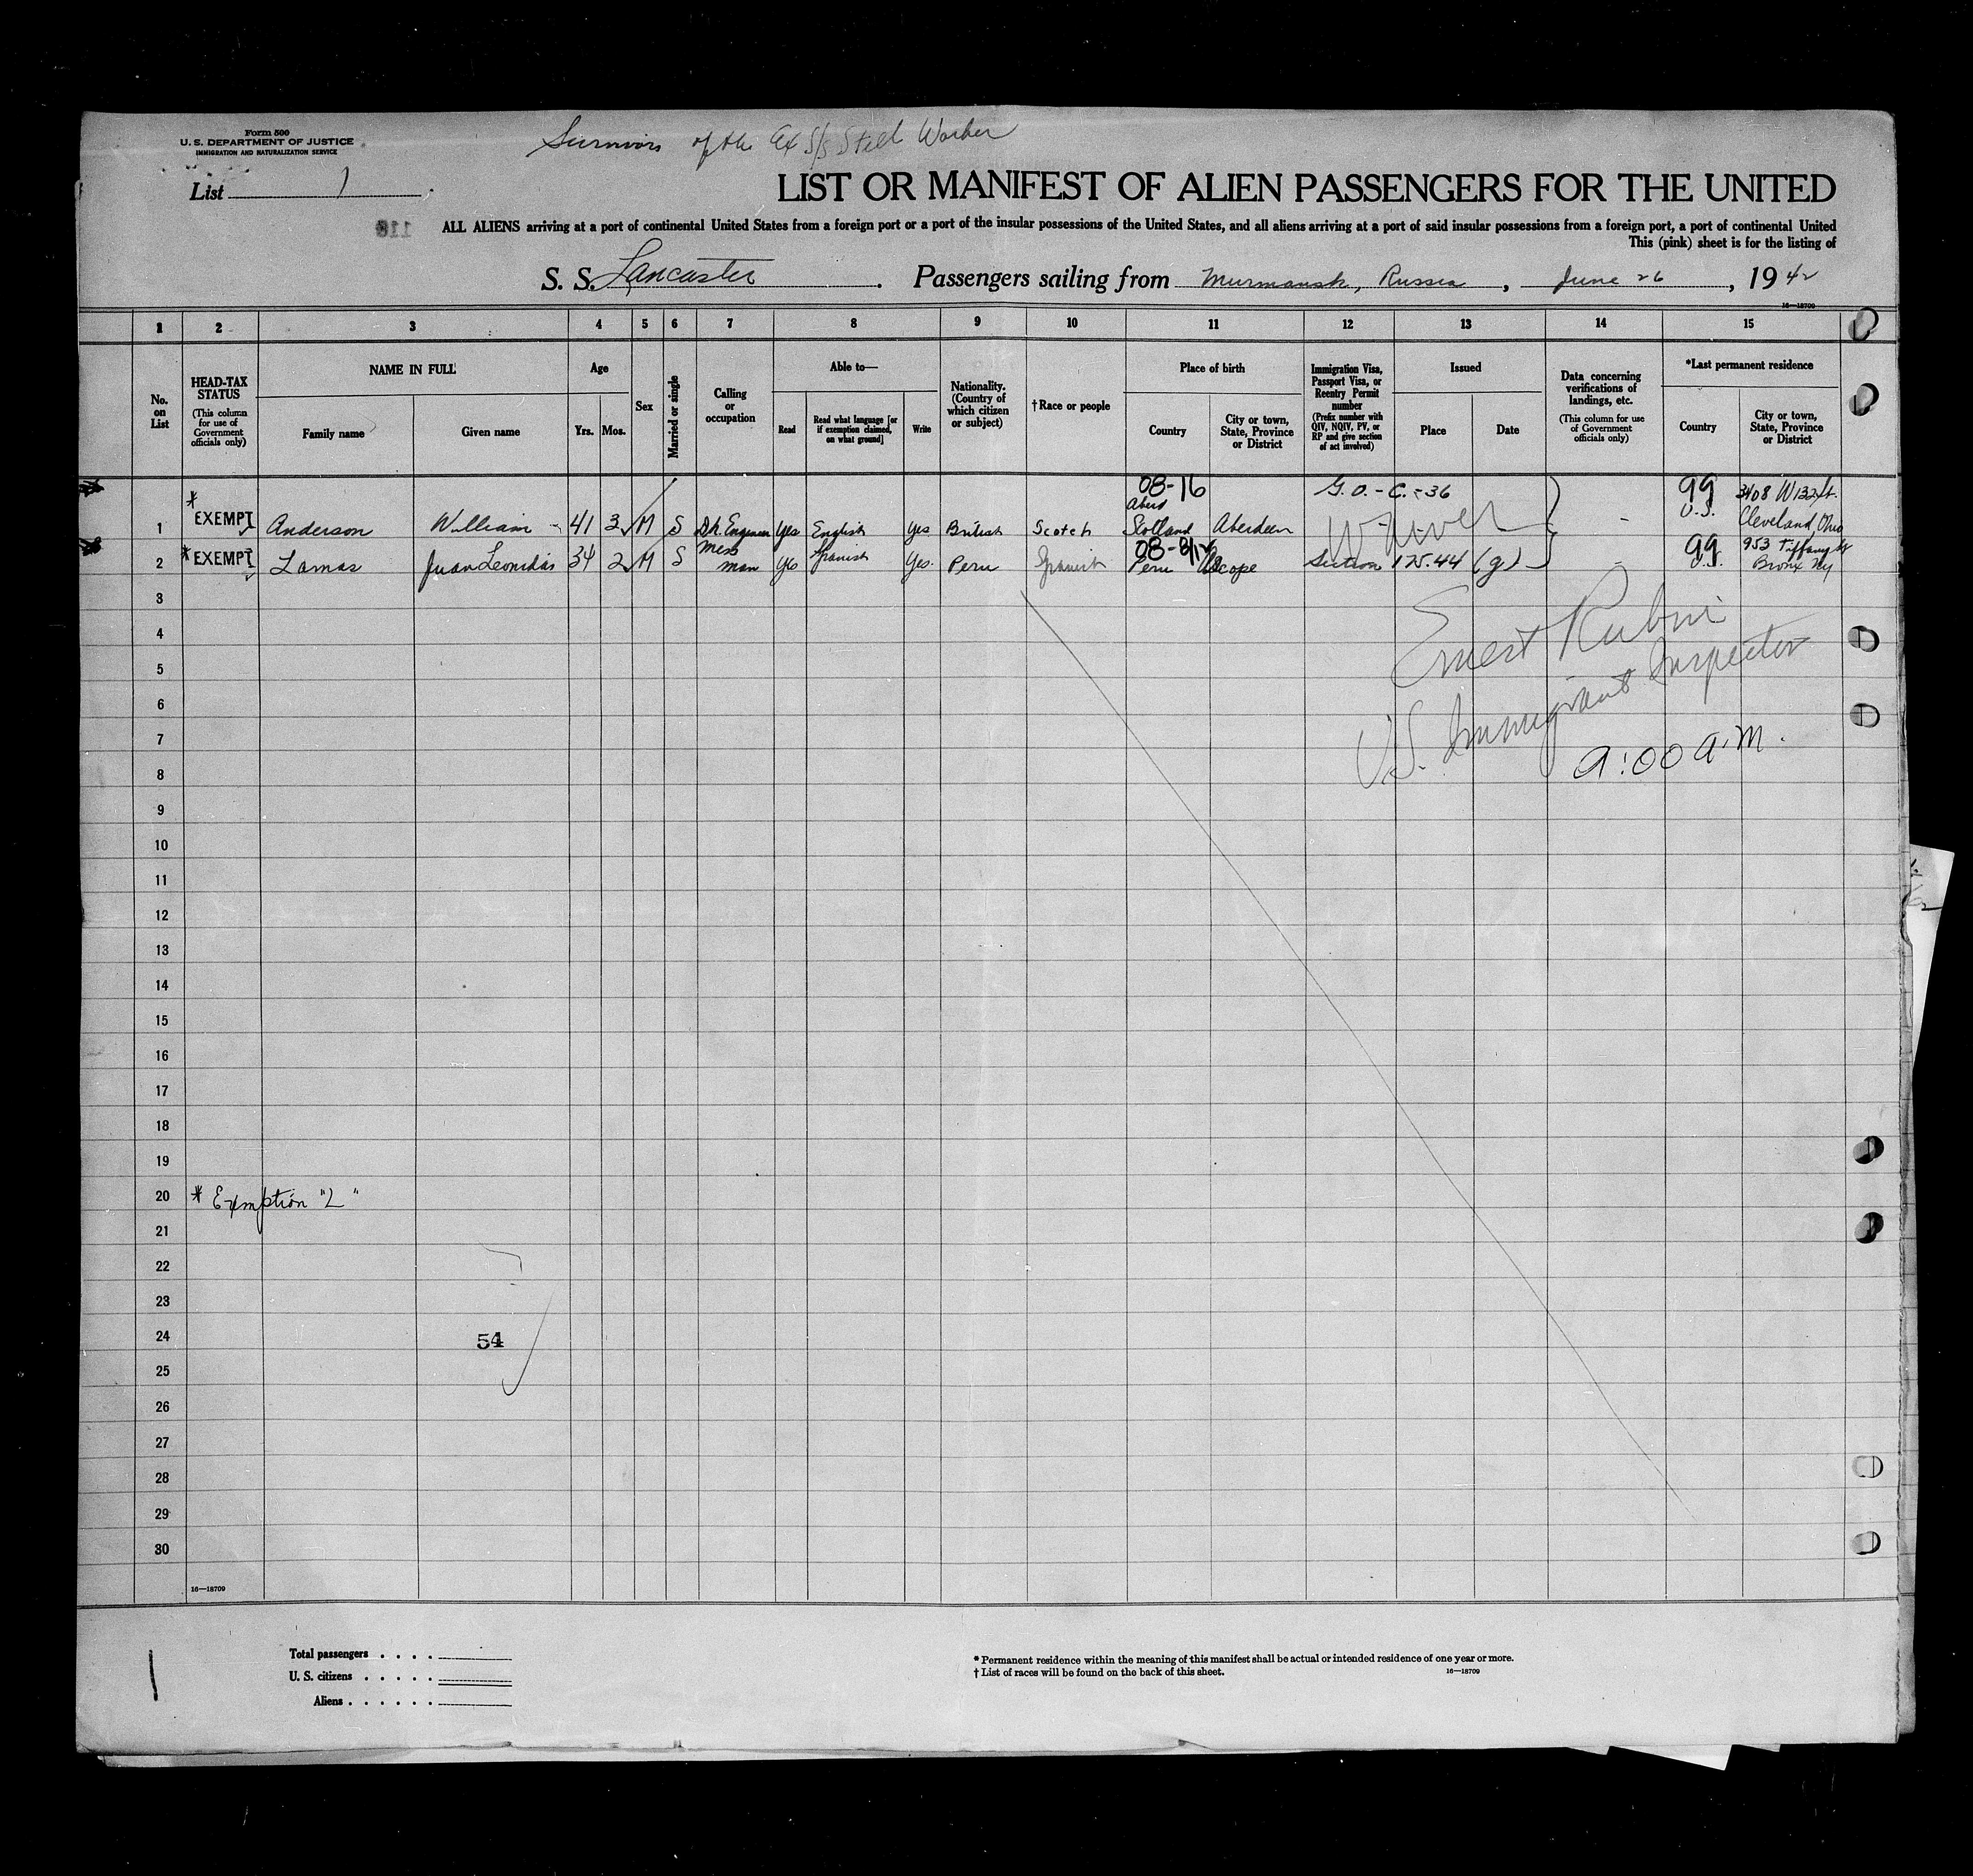 Form 500
U. S. DEPARTMENT OF JUSTICE
IMMIGRATION AND NATURALIZATION SERVICE
Survivors of the Ex S/S Steel Worker
List 1
LIST OR MANIFEST OF ALIEN PASSENGERS FOR THE UNITED
ALL ALIENS arriving at a port of continental United States from a foreign port or a port of the insular possessions of the United States, and all aliens arriving at a port of said insular possessions from a foreign port, a port of continental United
This (pink) sheet is for the listing of
S. S. Lancaster. Passengers sailing from Murmansk, Russia, June 26, 1942
16—18709
1 2 3 4 5 6 7 8 9 10 11 12 13 14 15
No. on List
HEAD-TAX STATUS (This column for use of Government officials only)
NAME IN FULL
Family name
Given name
Age
Yrs. Mos.
Sex
Married or single
Calling or occupation
Able to—
Read
Read what language [or if exemption claimed, on what ground]
Write
Nationality. (Country of which citizen or subject)
†Race or people
Place of birth
Country
City or town, State, Province or District
Immigration Visa, Passport Visa, or Reentry Permit number (Prefix number with QIV, NQIV, PV, or RP and give section of act involved)
Issued
Place
Date
Data concerning verifications of landings, etc. (This column for use of Government officials only)
*Last permanent residence
Country
City or town, State, Province or District
08-16 G.O.-C.-36 99 3408 W 132 St.
1 * EXEMPT Anderson William 41 3 M S Dk. Engineer Yes English Yes British Scotch Aberd Scotland Aberdeen Waiver U.S. Cleveland Ohio
08- 99 953 Tiffany St
2 * EXEMPT Lamas Juan Leonidas 34 2 M S Mess man Yes Spanish Yes. Peru Spanish Peru Section 175.44 (g) U.S. Bronx NY
3
4
Ernest Rubin
5
6
U.S. Immigrant Inspector
7
9:00 a.m.
8
9
10
11
12
13
14
15
16
17
18
19
20 * Exemption "L"
21
22
23
24 54
25
26
27
28
29
30
16—18709
Total passengers . . . .
U. S. citizens . . . . .
Aliens . . . . . .
* Permanent residence within the meaning of this manifest shall be actual or intended residence of one year or more.
† List of races will be found on the back of this sheet.
16—18709